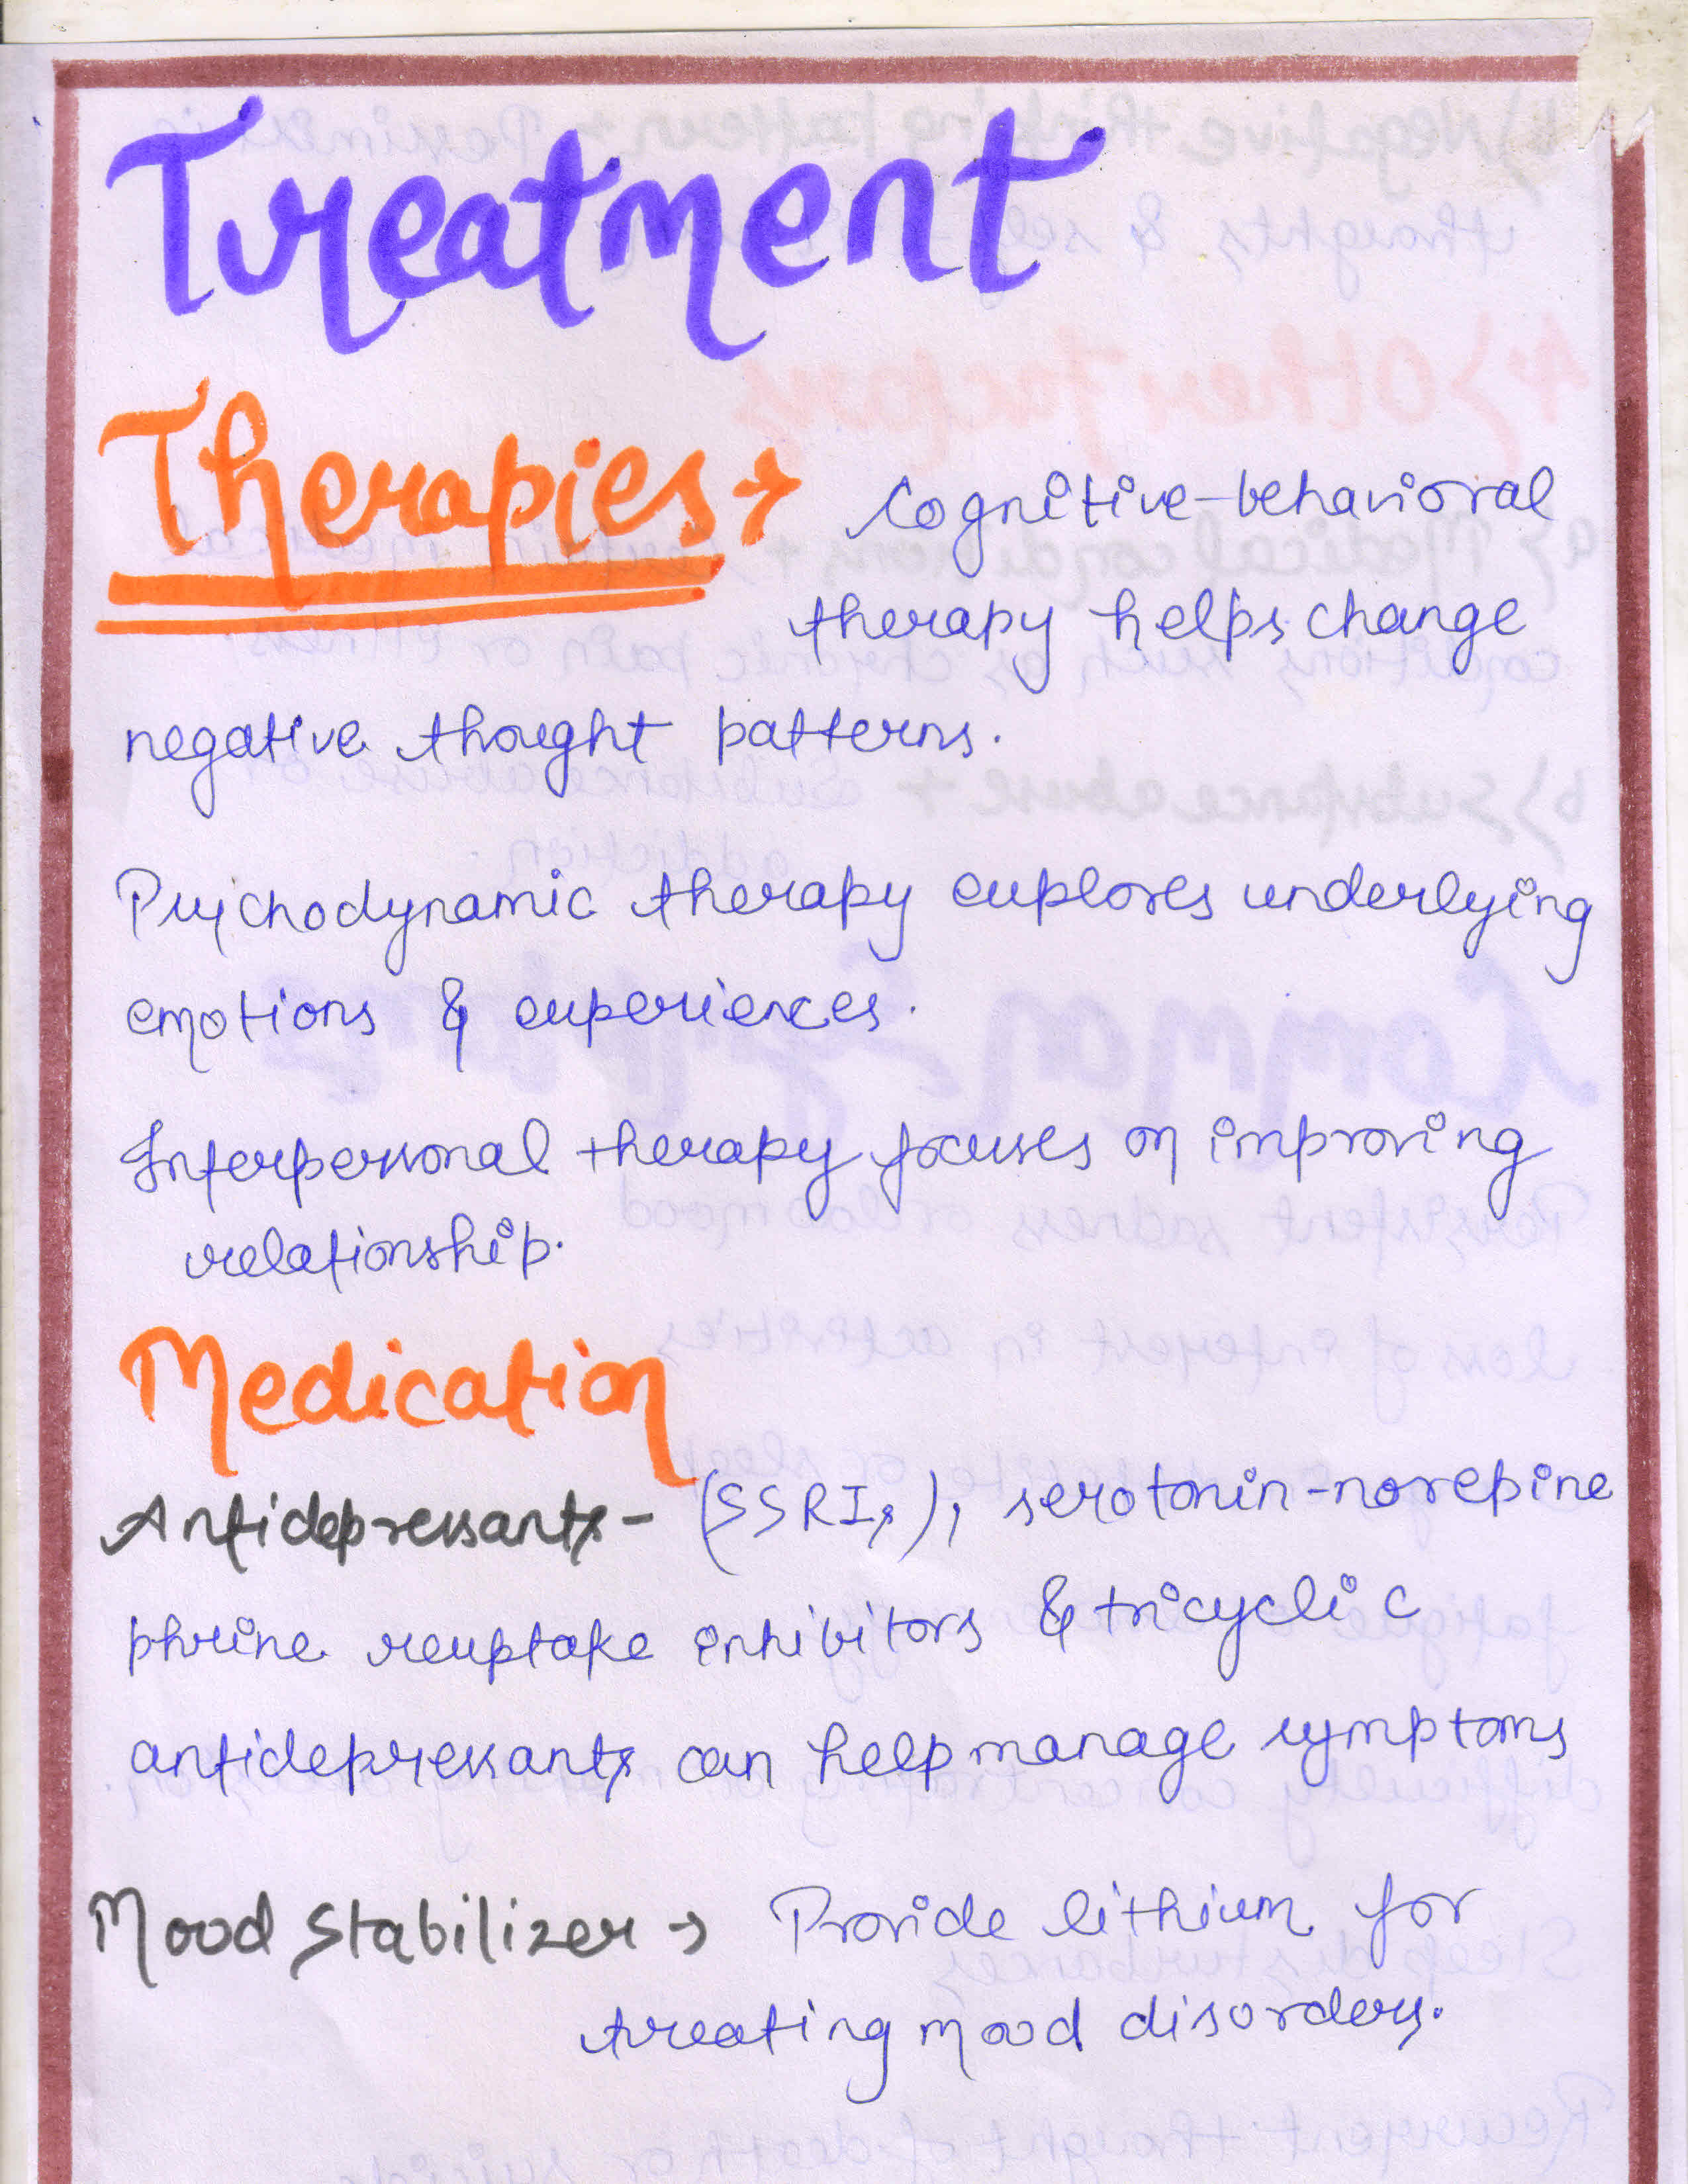 Treatment
Therapies → Cognitive-behavioral
therapy helps change
negative thought patterns.
Psychodynamic therapy explores underlying
emotions & experiences.
Interpersonal therapy focuses on improving
relationship.
Medication
Antidepressants- (SSRIs), serotonin-norepine
phrine reuptake inhibitors & tricyclic
antidepressants can help manage symptoms
Mood Stabilizer → Provide lithium for
treating mood disorders.